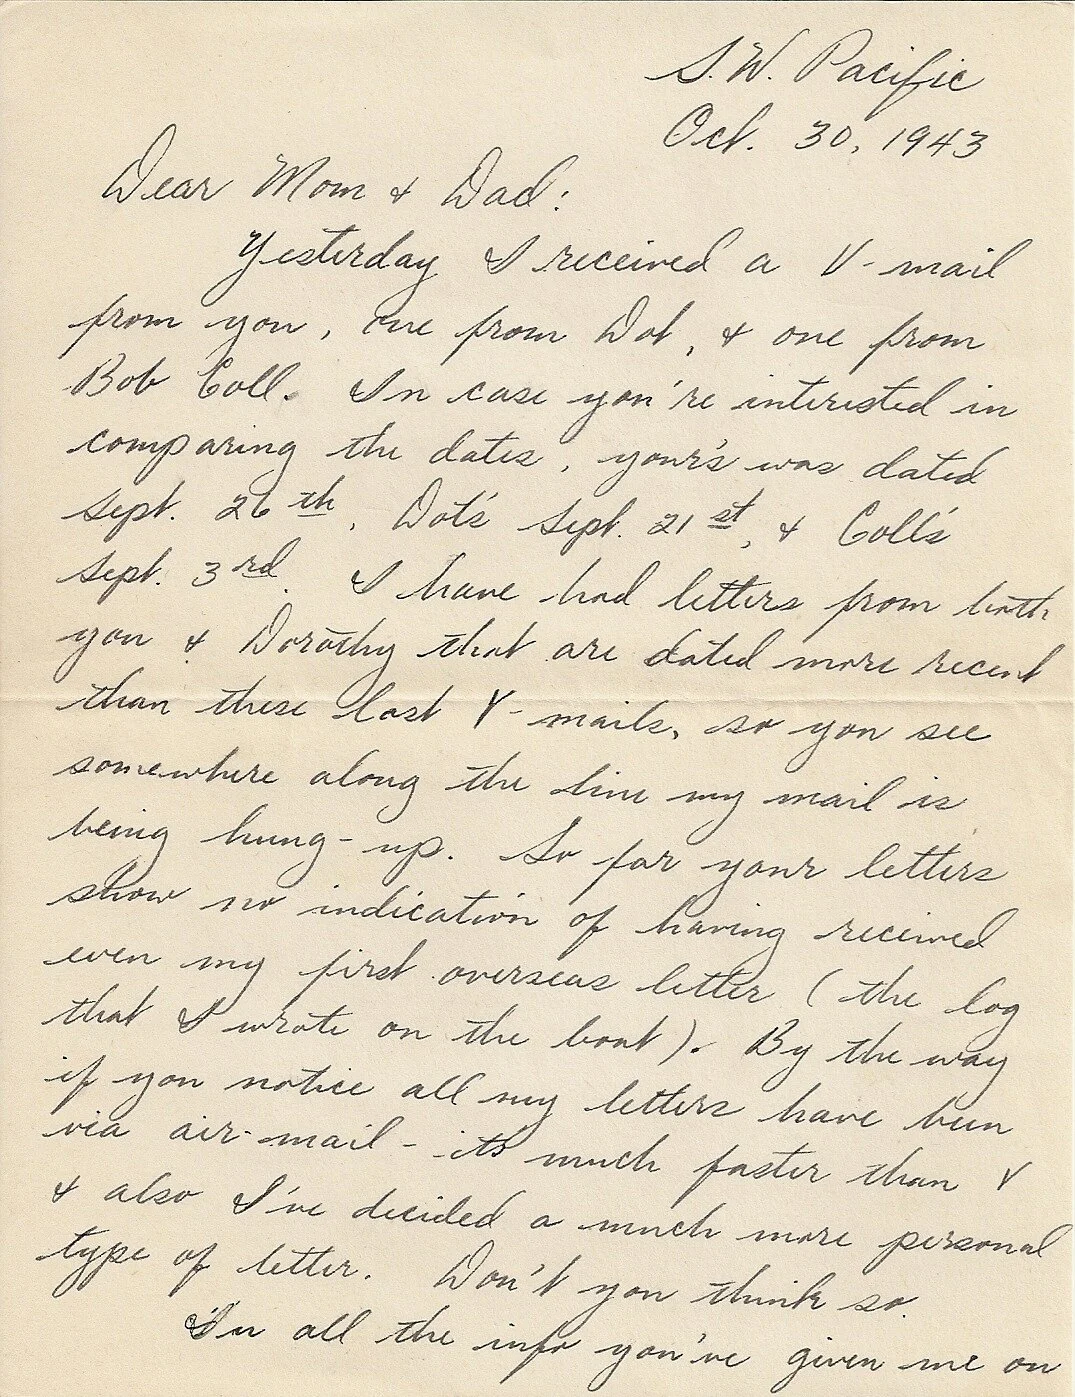 S.W. Pacific
Oct. 30, 1943
Dear Mom & Dad:
Yesterday I received a V-mail
from you, one from Dot, & one from
Bob Coll. In case you're interested in
comparing the dates, your's was dated
Sept. 26th, Dot's Sept. 21st, & Coll's
Sept. 3rd. I have had letters from both
you & Dorothy that are dated more recent
than these last V-mails, so you see
somewhere along the line my mail is
being hung-up. So far your letters
show no indication of having received
even my first overseas letter (the log
that I wrote on the boat). By the way
if you notice all my letters have been
via air-mail - it's much faster than V
& also I've decided a much more personal
type of letter. Don't you think so.
In all the info you've given me on